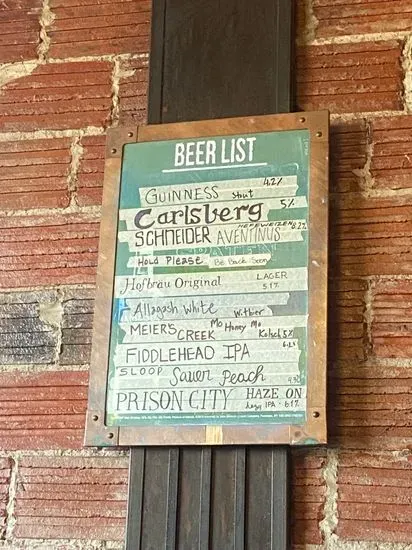 BEER LIST
GUINNESS Stout 4.2%
Carlsberg 5%
SCHNEIDER AVENTINUS HEFEWEIZEN 8.2%
Hold Please Be Back Soon
Hofbräu Original LAGER 5.1%
Allagash White Witbier
MEIER'S CREEK Mo Honey Mo Kolsch 5%
FIDDLEHEAD IPA
SLOOP Sauer Peach
PRISON CITY HAZE ON hazy IPA · 6.1%